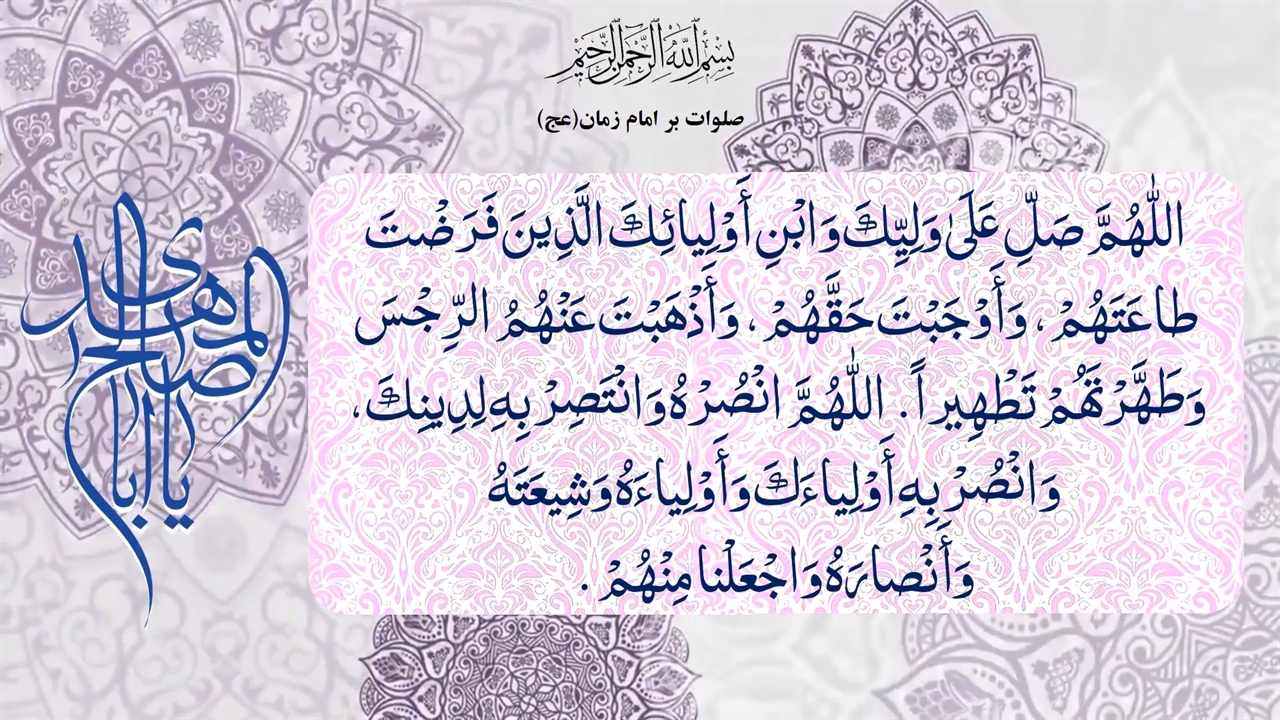 بسم الله الرحمن الرحيم
صلوات بر امام زمان(عج)
اللّٰهُمَّ صَلِّ عَلَىٰ وَلِيِّكَ وَابْنِ أَوْلِيائِكَ الَّذِينَ فَرَضْتَ
طاعَتَهُمْ، وَأَوْجَبْتَ حَقَّهُمْ، وَأَذْهَبْتَ عَنْهُمُ الرِّجْسَ
وَطَهَّرْتَهُمْ تَطْهِيراً. اللّٰهُمَّ انْصُرْهُ وَانْتَصِرْ بِهِ لِدِينِكَ،
وَانْصُرْ بِهِ أَوْلِياءَكَ وَأَوْلِياءَهُ وَشِيعَتَهُ
وَأَنْصارَهُ وَاجْعَلْنا مِنْهُمْ.
يا أباصالح المهدى